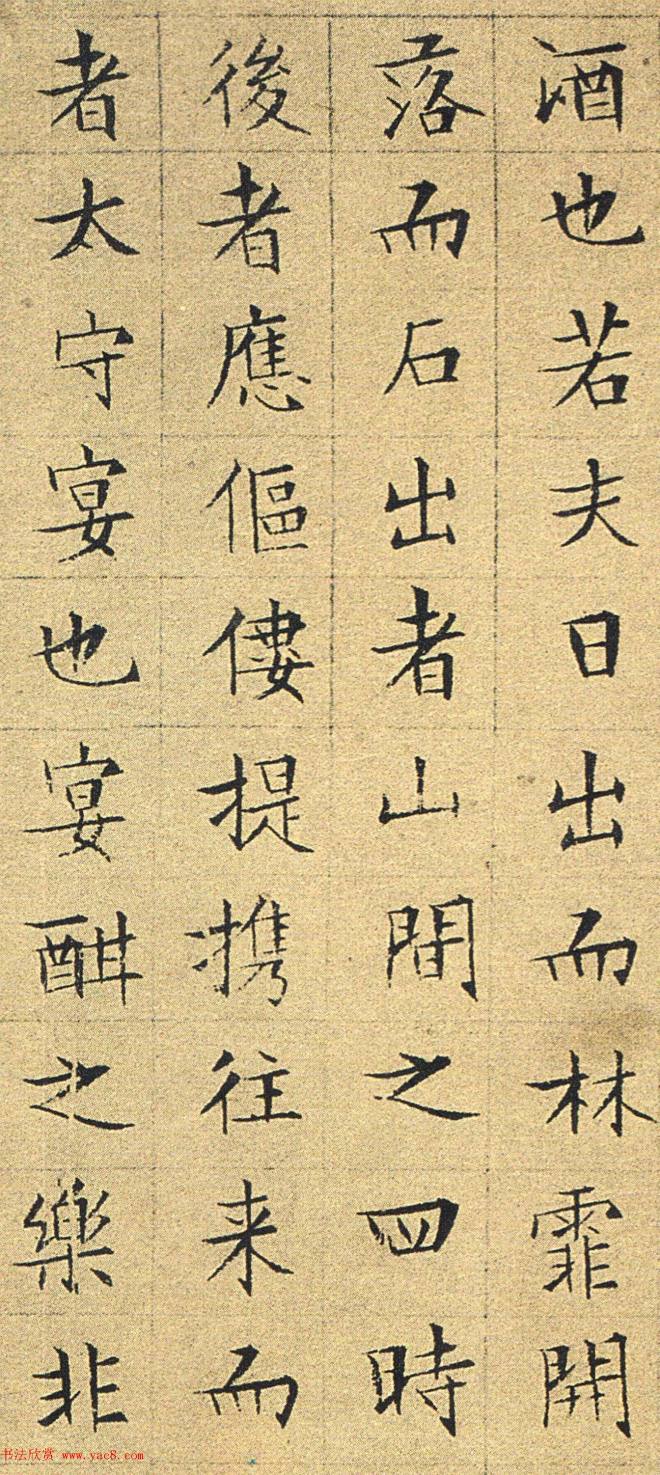 酒也若夫日出而林霏開
落而石出者山間之四時
後者應傴僂提携往来而
者太守宴也宴酣之樂非
书法欣赏 www.yac8.com